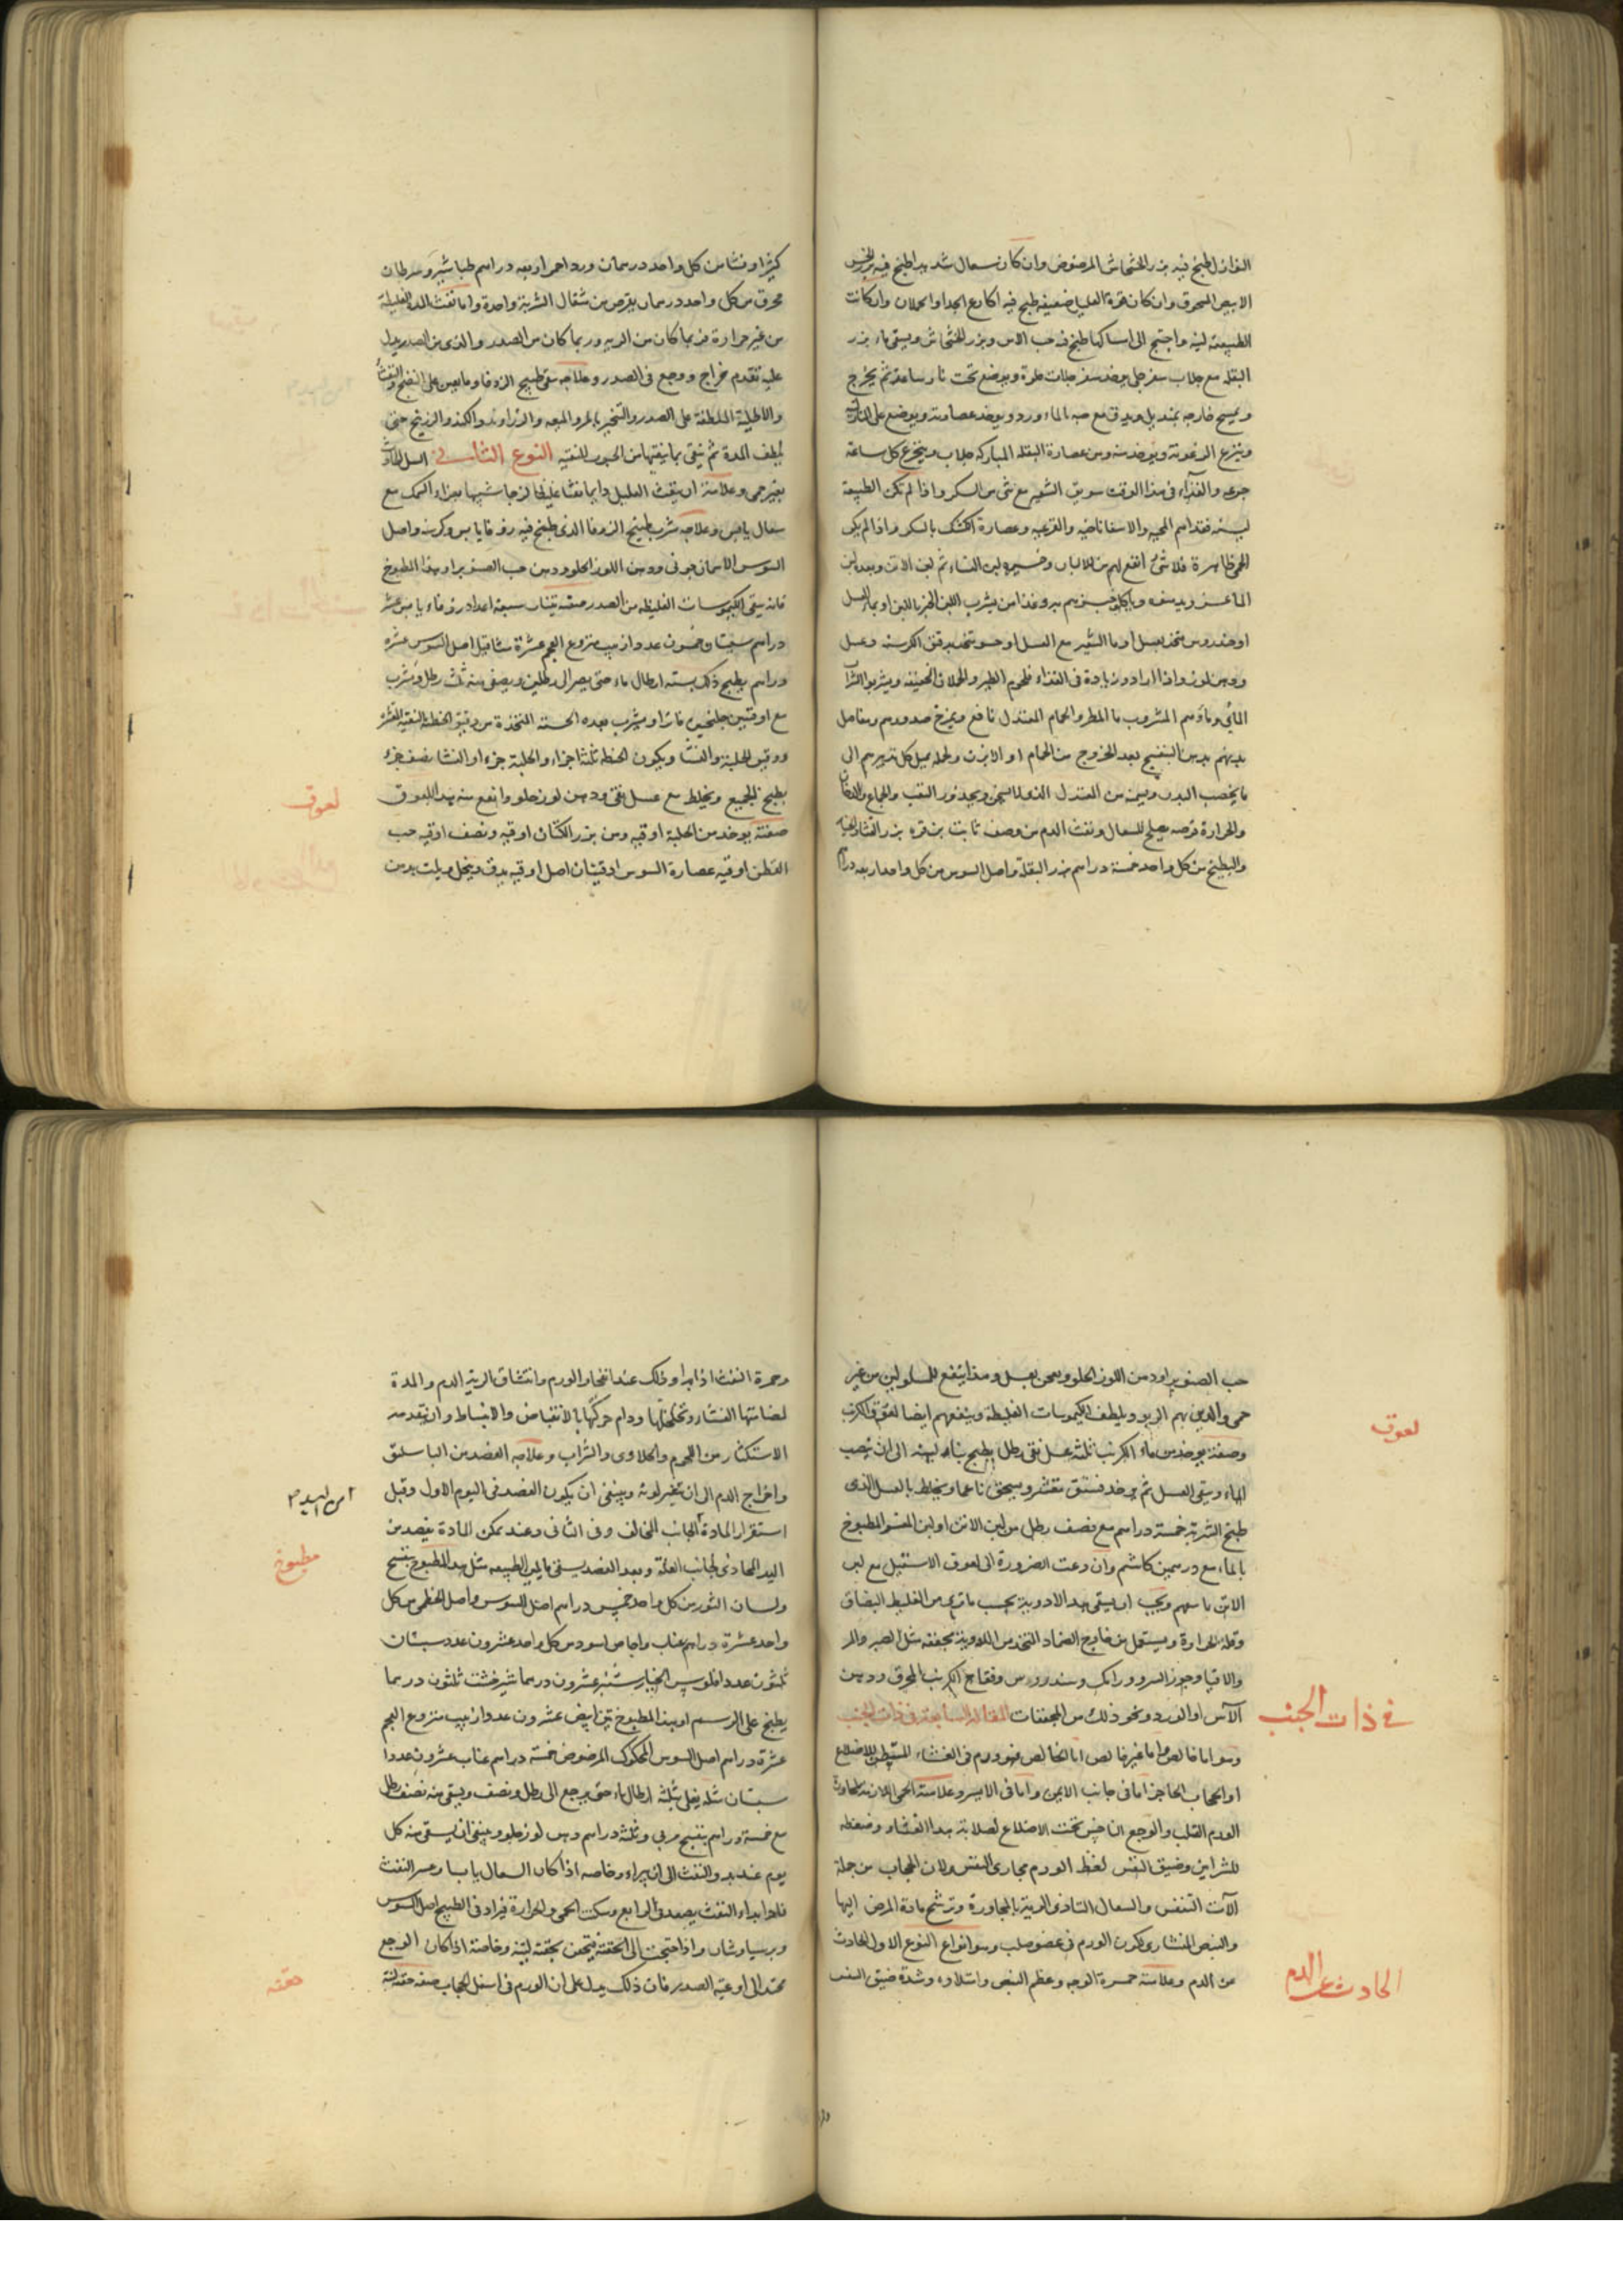 النوازل طبخ فيه بزر الخشخاش المرضوض وان كان سعال شديد اطبخ فيه بزر الخس
الابيض المسحوق وان كان قوة العليل ضعيفة طبخ فيه اكارع الجدا والحملان وان كانت
الطبيعة لينة واحتيج الى امساكها طبخ فيه حب الاس وبزر الخشخاش ويسقى ماء بزر
البقلة مع جلاب سفرجلى يوخذ سفرجلات حلوة ويوضع تحت نار ساعة ثم يخرج
ويمسح خارجه بمنديل ويدق مع حبه بالماء ورد ويوخذ عصارته ويوضع على النار
وينزع الرغوة ويوخذ منه ومن عصارة البقلة المباركة جلاب ويتجرع كل ساعة
جرعة والغذاء فى هذا الوقت سويق الشعير مع شى من السكر واذا لم تكن الطبيعة
لينة فغذاهم المحية والاسفاناخية والقرعية وعصارة الكشك بالسكر واذا لم يكن
الحمى ظاهرة فلا شى انفع لهم من الالبان وخيره لبن النساء ثم لبن الاتن وبعده لبن
الماعز
او خندروس متخذ بعسل او ماء الشعير مع العسل او حسو متخذ من دقيق الكرسنة وعسل
ودهن لوز واذا ارادوا زيادة فى الغذاء فلحوم الطير والحملان الخفيفة ويشربوا الشراب
المائى وماؤهم المشروب ماء المطر والحمام المعتدل نافع ويمرخ صدورهم ومفاصل
بدنهم بدهن البنفسج بعد الخروج من الحمام او الابزن ولجملة يميل كل تدبيرهم الى
ما يخصب البدن ويسمنه من المعتدل الغذاء السمين ويحذرون التعب والجماع والدخان
والحرارة قرصة يصلح للسعال ونفث الدم من وصف ثابت بن قرة بزر القثاء
والبطيخ من كل واحد خمسة دراهم بزر البقلة واصل السوس من كل واحد اربعة دراهم
كثيرا ونشا من كل واحد درهمان ورد احمر اربعة دراهم طباشير وسرطان
محرق من كل واحد درهمان يقرص من مثقال الشربة واحدة واما نفث المدة الغليظة
من غير حرارة فربما كان من الرية وربما كان من الصدر والذى من الصدر يدل
عليه تقدم خراج ووجع فى الصدر وعلاجه سقى طبيخ الزوفا وما يعين على النضج والنفث
والاطلية الملطفة على الصدر والتبخير بالمر والميعة والزراوند والكندر والزرنيخ حتى
يلطف المدة ثم ينقى بما ينقيها من الحبوب المنقية النوع الثانى فى السل الحادث
بغير حمى وعلامته ان ينفث العليل دايما نفثا غليظا لزجا شبيها بغراء السمك مع
سعال يابس وعلاجه شرب طبيخ الزوفا الذى طبخ فيه زوفا يابس وكرسنة واصل
السوس الاسمانجونى ودهن اللوز الحلو ودهن حب الصنوبر او هذا المطبوخ
فانه ينقى الكيموسات الغليظة من الصدر صفته تينات سبعة اعداد زوفاء يابس عشرة
دراهم سبستان وخمسون عددا زبيب منزوع العجم عشرة مثاقيل اصل السوس عشرة
دراهم يطبخ ذلك بستة ارطال ماء حتى يصير الى رطلين ويصفى منه ثلث رطل ويشرب
مع اوقيتين جلنجبين فاترا ويشرب بعده الحسية المتخذة من دقيق الحنطة النقية المقشرة
ودقيق الحلبة والنشا ويكون الحنطة ثلثة اجزاء والحلبة جزء او النشا نصف جزء
يطبخ الجميع ويخلط مع عسل نقى ودهن لوز حلو وانفع منه هذا اللعوق
لعوق
صفته يوخذ من الحلبة اوقية ومن بزر الكتان اوقية ونصف اوقية حب
القطن اوقية عصارة السوس اوقيتان اصل اوقية يدق وينخل ويلت بدهن
حب الصنوبر او دهن اللوز الحلو ويعجن بعسل وهذا ينفع المسلولين من غير
حمى والذين بهم الربو ويلطف الكيموسات الغليظة وينفعهم ايضا لعوق الكرنب
لعوق
وصفته يوخذ من ماء الكرنب ثلثة عسل نقى رطل يطبخ بنار لينة الى ان يذهب
الماء ويبقى العسل ثم يوخذ فستق مقشر ويسحق ناعما ويخلط بالعسل الذى
طبخ الشربة خمسة دراهم مع نصف رطل من لبن الاتن او لبن المعز المطبوخ
بالماء مع درهمين كاشم وان دعت الضرورة الى لعوق الاسقيل مع لبن
الاتن فاسقهم ويجب ان يسقى هذه الادوية بحسب ما ترى من الغليظ البصاق
وقلة الحرارة ويستعمل من خارج الضماد المتخذ من الادوية مجففة مثل الصبر والمر
والاقاقيا وجوز السرو ورامك وسندروس وفقاح الكرنب المحرق ودهن
الآس او الورد ونحو ذلك من المجففات المقالة السابعة فى ذات الجنب
فى ذات الجنب
وهو اما خالص واما غير خالص اما الخالص فهو ورم فى الغشاء المستبطن للاضلاع
او الحجاب الحاجز اما فى جانب الايمن واما فى الايسر وعلامته الحمى اللازمة لمجاورة
الورم القلب والوجع الناخس تحت الاضلاع لصلابة هذا الغشاء وضغطه
للشرايين وضيق النفس لضغط الورم مجارى النفس ولان الحجاب من جملة
الآت التنفس والسعال لتاذى الرية بالمجاورة وترشح مادة المرض اليها
والنبض المنشارى لكون الورم فى عضو صلب وهو انواع النوع الاول الحادث
من الدم وعلامته حمرة الوجه وعظم النبض وامتلاوه وشدة ضيق النفس
الحادث عن الدم
وحمرة النفث اذا بدا وذلك عند انفجار الورم وانتشاق الرية الدم والمدة
لمضامتها الغشاء وتخلخلها ودام حركتها بالانقباض والانبساط وان تقدمه
الاستكثار من اللحوم والحلاوى والشراب وعلاجه الفصد من الباسليق
واخراج الدم الى ان تغير لونه وينبغى ان يكون الفصد فى اليوم الاول وقبل
استقرار المادة الجانب المخالف وفى الثانى وعند تمكن المادة يفصد من
اليد المحاذى لجانب العلة وبعد الفصد يسقى ما يلين الطبيعة مثل هذا المطبوخ بنفسج
مطبوخ
ولسان الثور من كل واحد خمس دراهم اصل السوس واصل الخطمى من كل
واحد عشرة دراهم عناب واجاص اسود من كل واحد عشرون عدد سبستان
ثلثون عددا فلوس الخيار شنبر عشرون درهما شيرخشت ثلثون درهما
يطبخ على الرسم او بهذا المطبوخ تين ابيض عشرون عددا زبيب منزوع العجم
عشرة دراهم اصل السوس المحكوك المرضوض خمسة دراهم عناب عشرون عددا
سبستان مثله يغلى بثلثة ارطال ماء حتى يرجع الى رطل ونصف ويسقى منه نصف رطل
مع خمسة دراهم بنفسج مربى وثلثة دراهم دهن لوز حلو وينبغى ان يسقى منه كل
يوم عند بدو النفث الى ان يبراء وخاصة اذا كان السعال يابسا وعسر النفث
فاذا ابتداء النفث يصعد فى الرابع وسكنت الحمى والحرارة فيزاد فى الطبيخ اصل السوس
وبرسياوشان واذا احتيجت الى الحقنة فيحقن بحقنة لينة وخاصة اذا كان الوجع
يمتد الى اوعية الصدر فان ذلك يدل على ان الورم فى اسفل الحجاب صفة حقنة لينة
حقنه